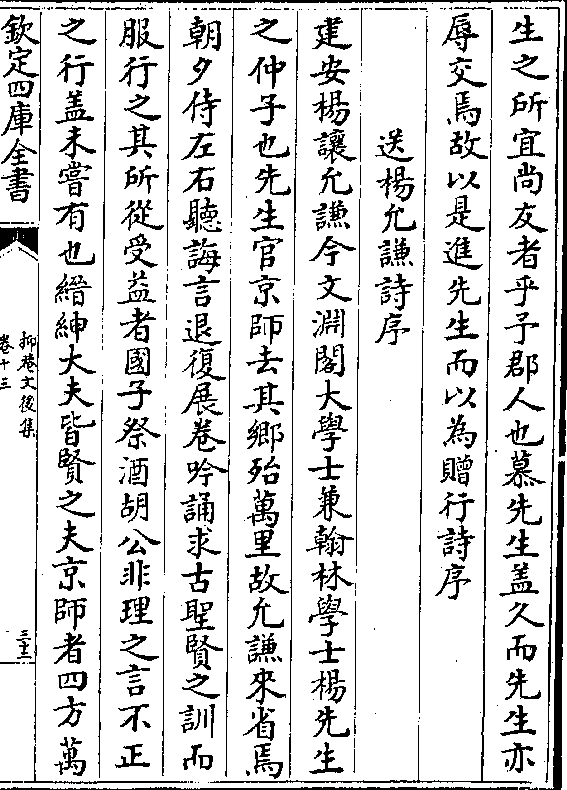 生之所宜尚友者乎予郡人也慕先生盖久而先生亦
辱交焉故以是進先生而以為贈行詩序
送楊允謙詩序
建安楊讓允謙今文淵閣大學士兼翰林學士楊先生
之仲子也先生官京師去其鄉殆萬里故允謙來省焉
朝夕侍左右聽誨言退復展卷吟誦求古聖賢之訓而
服行之其所從受益者國子祭酒胡公非理之言不正
之行盖未嘗有也縉紳大夫皆賢之夫京師者四方萬
欽定四庫全書
抑菴文後集
卷十三
三十三